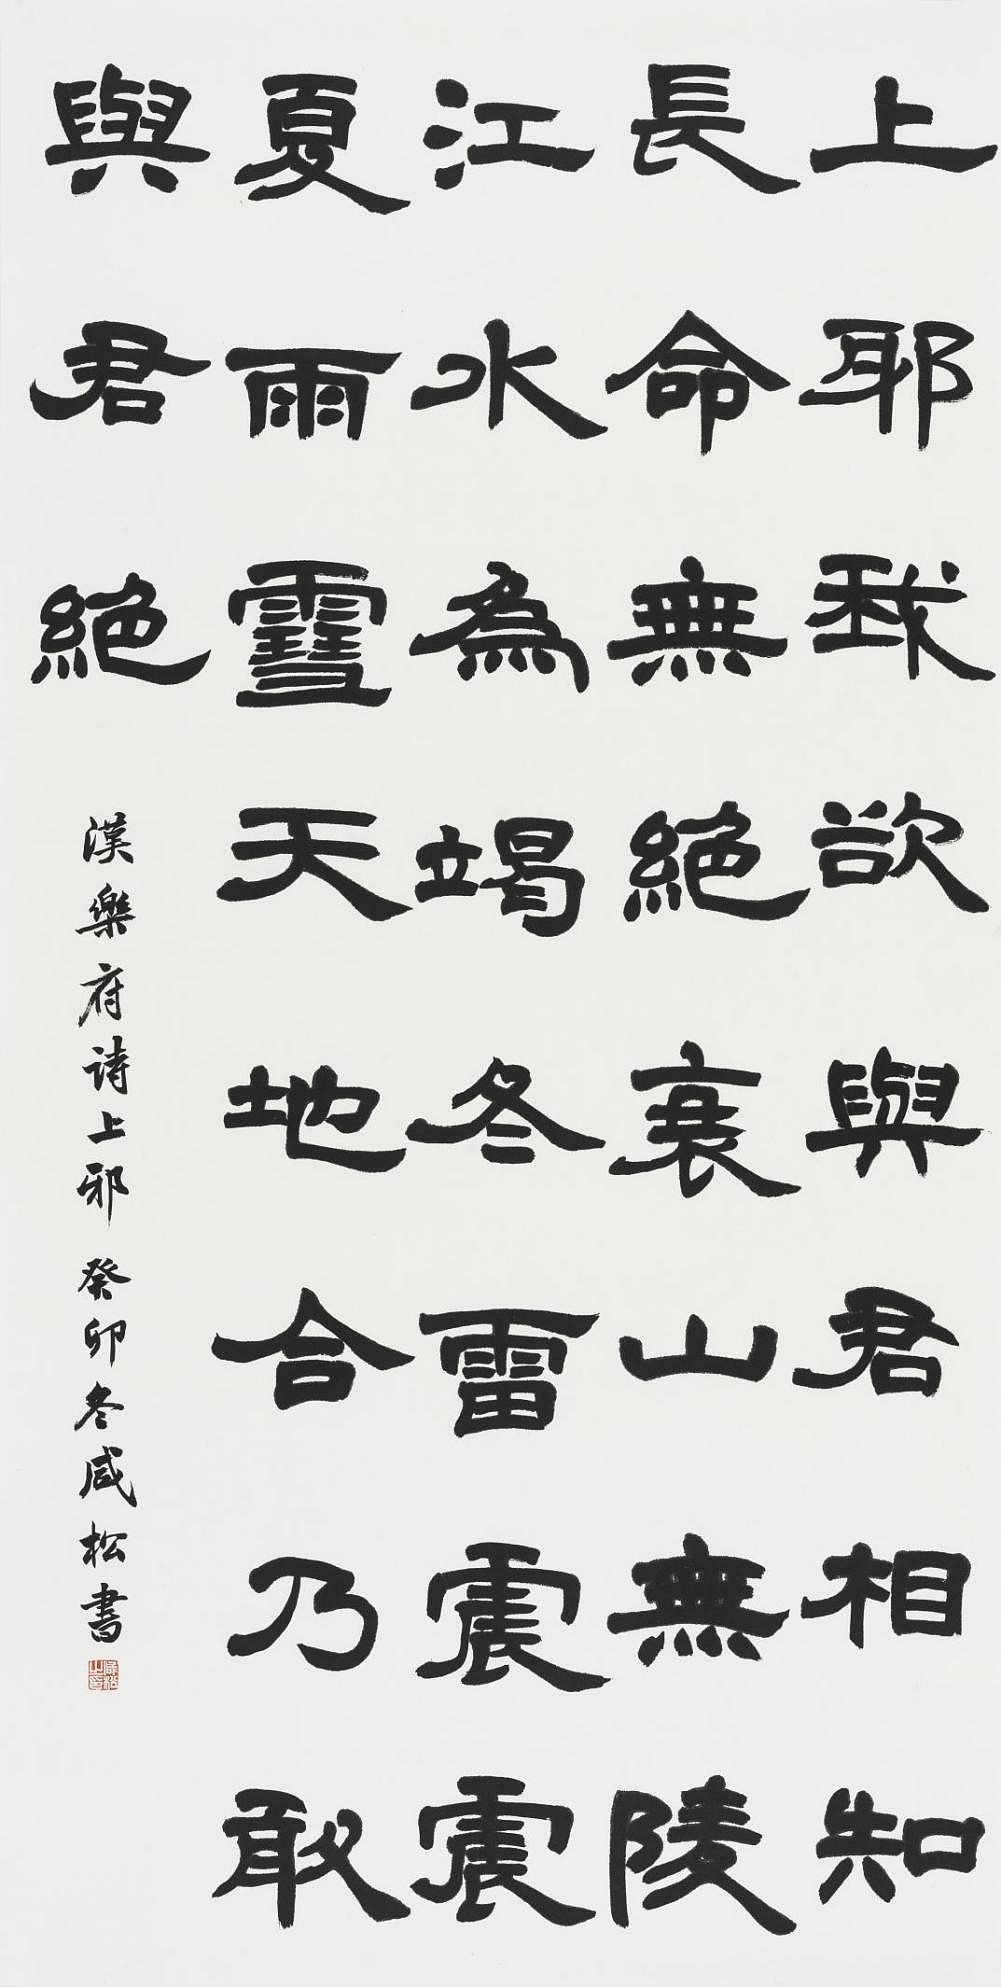 上耶我欲與君相知
長命無絕衰山無陵
江水為竭冬雷震震
夏雨雪天地合乃敢
與君絕
漢樂府诗上邪 癸卯冬咸松書